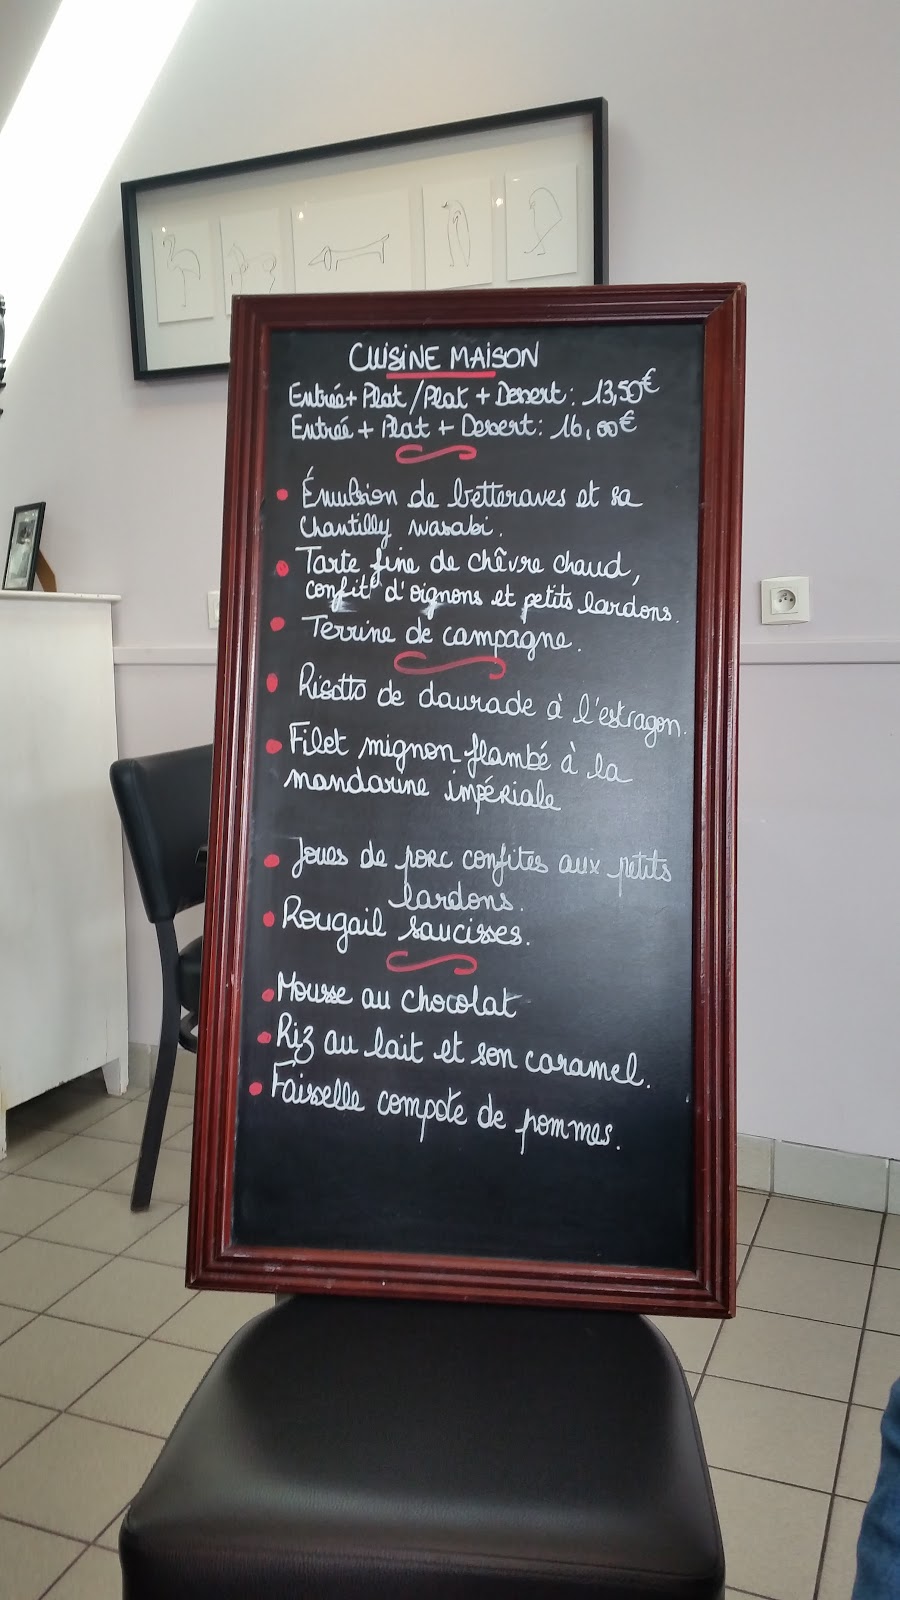 CUISINE MAISON
Entrée + Plat / Plat + Dessert : 13,50€
Entrée + Plat + Dessert : 16,00€
• Émulsion de betteraves et sa
chantilly wasabi.
• Tarte fine de chêvre chaud,
confit d'oignons et petits lardons.
• Terrine de campagne.
• Risotto de daurade à l'estragon.
• Filet mignon flambé à la
mandarine impériale
• Joues de porc confites aux petits
lardons.
• Rougail saucisses.
• Mousse au chocolat
• Riz au lait et son caramel.
• Faisselle compote de pommes.